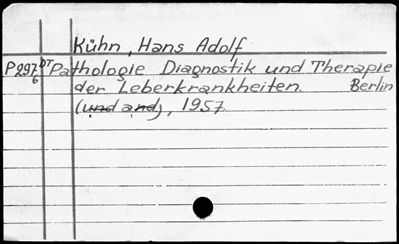 Kühn, Hans Adolf
P 297 6 DT Pathologie Diagnostik und Therapie
der Leberkrankheiten. Berlin
(und and), 1957.